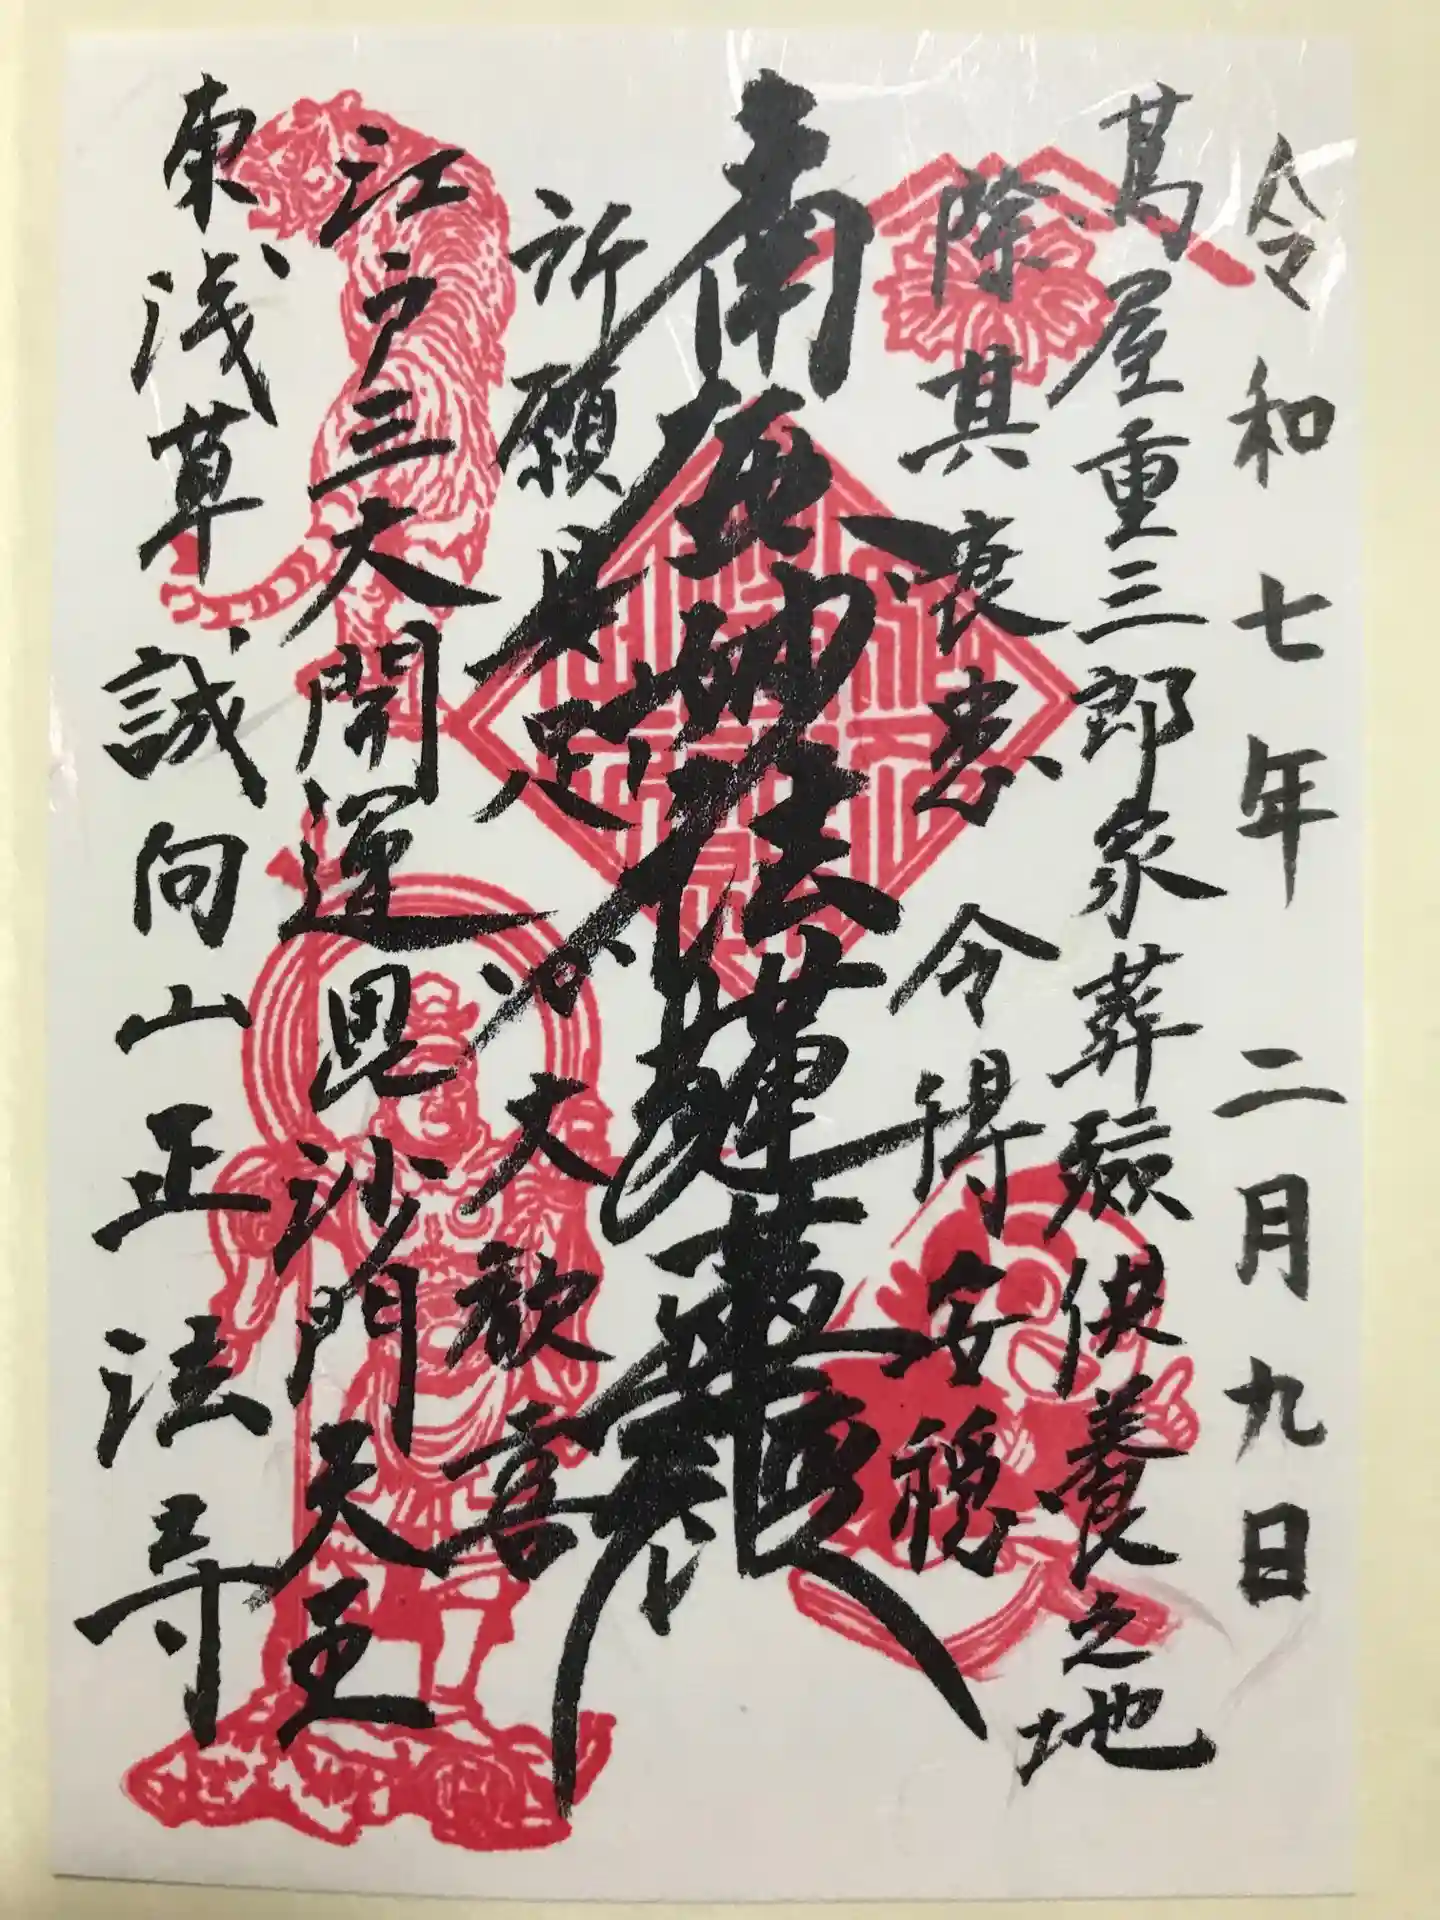 令和七年二月九日
蔦屋重三郎家葬殮供養之地
除其衰患 令得安穏
南無妙法蓮華経
所願具足 心大歓喜
江戸三大開運毘沙門天王
東浅草 誠向山正法寺